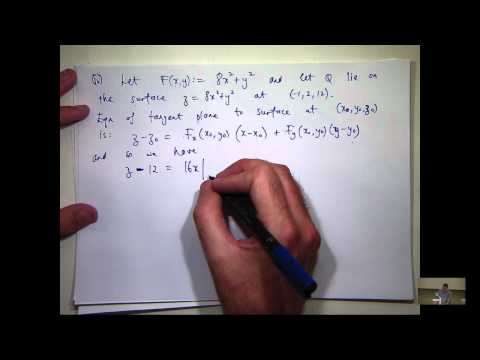 Q) Let F(x,y) := 8x² + y² and let Q lie on
the surface z = 8x² + y² at (-1, 2, 12).
Eqn of tangent plane to surface at (x₀, y₀, z₀)
is: z - z₀ = Fₓ(x₀, y₀) (x - x₀) + Fy(x₀, y₀) (y - y₀)
and so we have
z - 12 = 16x|